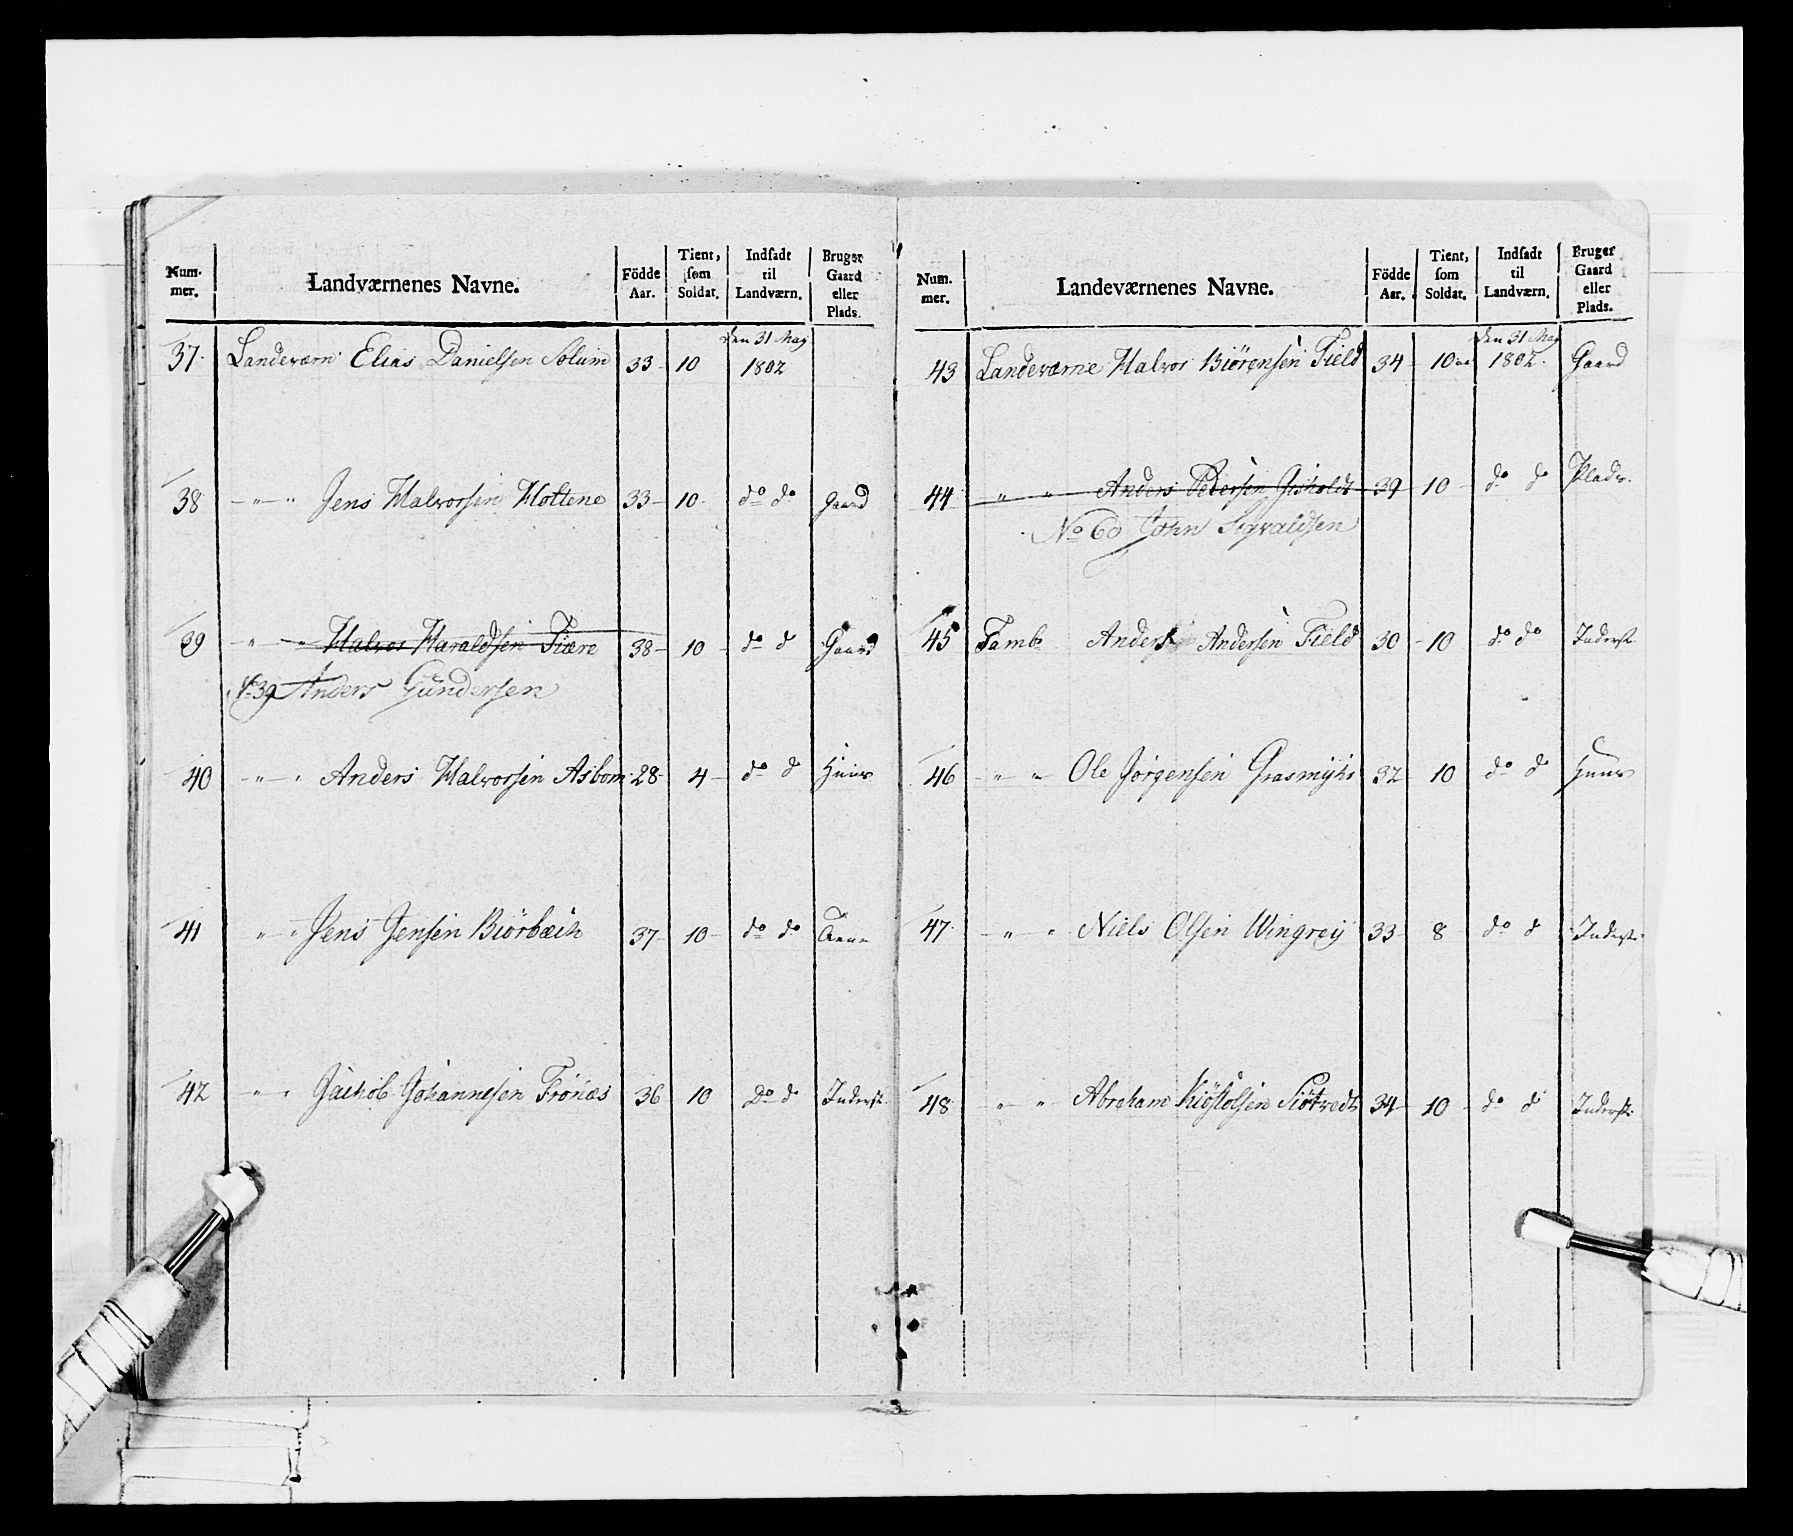 Num-mer. | Landværnenes Navne. | Födde Aar. | Tient, som Soldat. | Indsadt til Landværn. | Bruger Gaard eller Plads.
den 31 May
37. Landeværn Elias Danielsen Solum 33- 10 1802
38 - " - " Jens Halvorsen Holtene 33- 10- do do Gaard
39 - " - " Halvor Haraldsen Fiære 38- 10- do d Gaard
No 39 Anders Gundersen
40 " - " Anders Halvorsen Asbom 28- 4- do d Huus
41 " - " Jens Jensen Biörbæch 37- 10- do do
42 - " " Jachob Johannesen Frönæs 36 10 Do d Inderst
Num-mer. | Landeværnenes Navne. | Födde Aar. | Tient, som Soldat. | Indsadt til Landværn. | Bruger Gaard eller Plads.
den 31 May
43 Landeværne Halvor Biörensen Field 34- 10 1802. Gaard
44 - " - " Anders Pedersen Gisholdt 39 10- do d Plads.
No 60 John Sigvaldsen
45 Tamb Anders Andersen Field 30 - 10 do do Inderst
46 - " - " Ole Jörgensen Grasmyhr 32 10 do d Huus
47. - " - " Niels Olsen Wingrey 33- 8 do d Inderst
48 - " - " Abraham Kiöstolsen Siötvedt 34- 10- do d Inderst